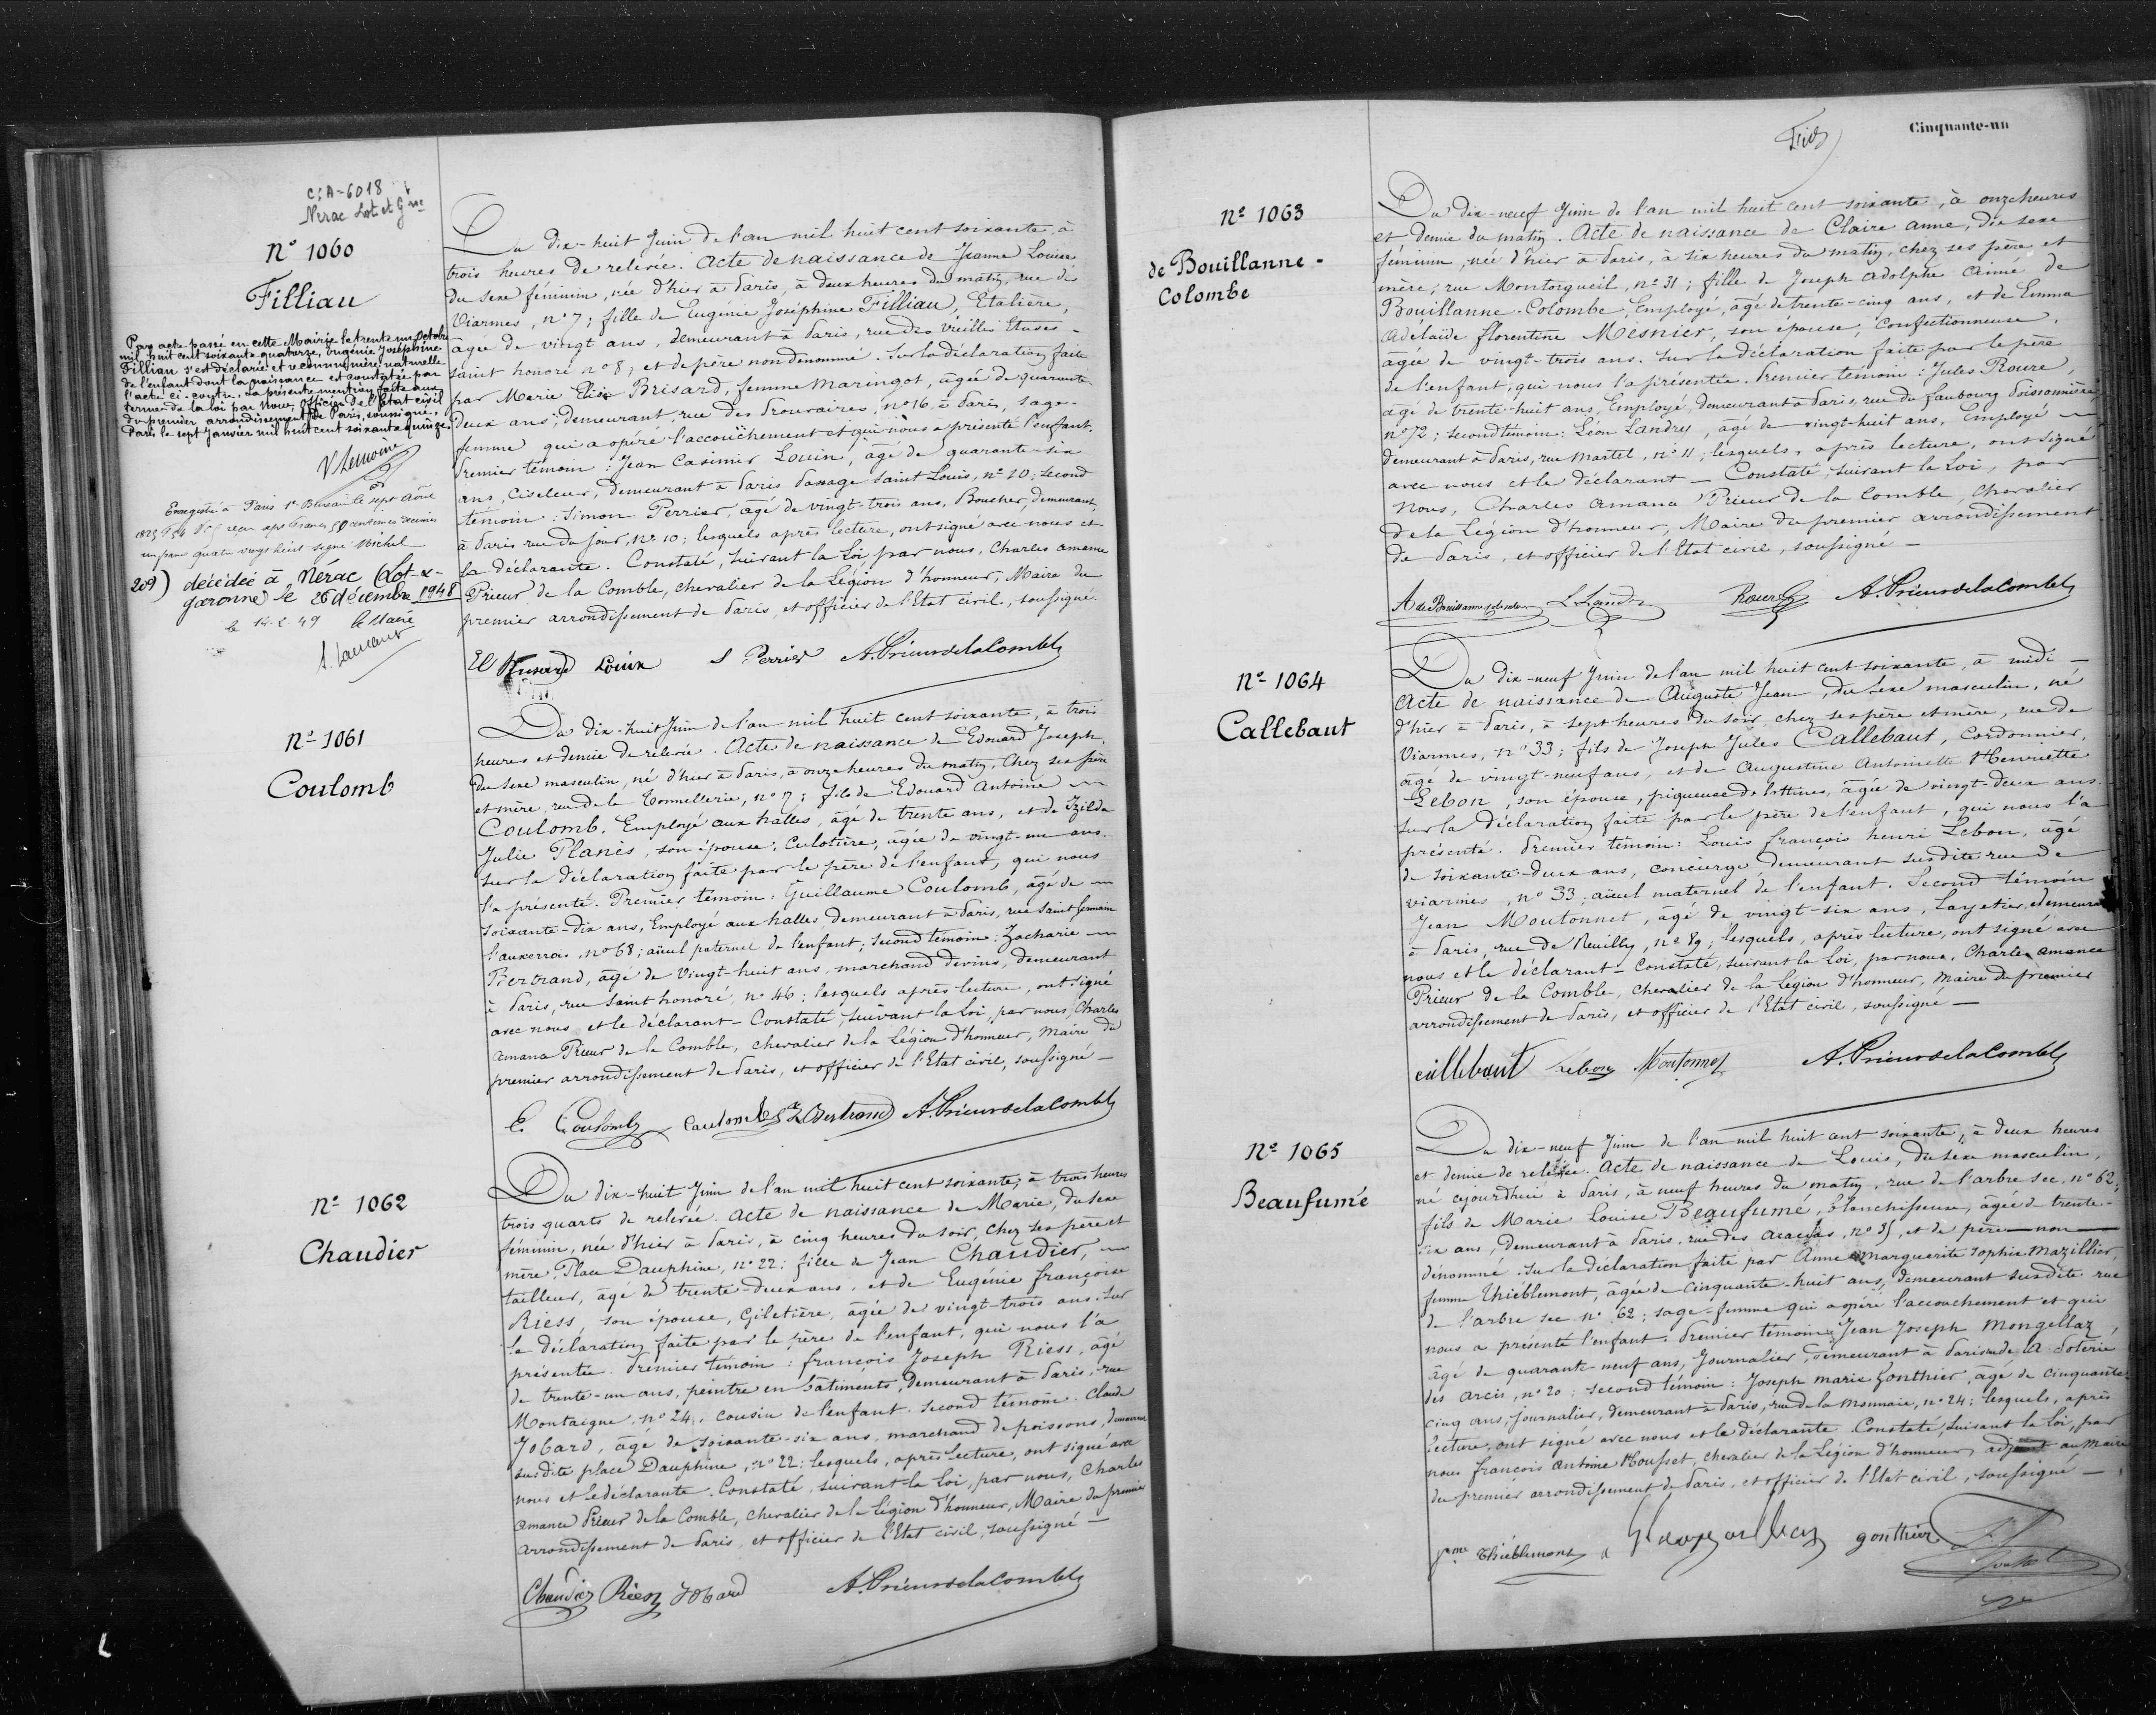 C: A-6018
Nérac Lot et Gne
Nº 1060
Filliau
Par acte passé en cette Mairie le trente un Octobre
mil huit cent soixante quatorze, Eugénie Joséphine
Filliau s'est déclarée et reconnue mère naturelle
de l'enfant dont la naissance est constatée par
l'acte ci-contre. La présente mention faite aux
termes de la loi par Nous, Officier de l'Etat civil
du premier arrondissement de Paris, soussigné.
Paris le sept Janvier mil huit cent soixante quinze.
V Lemoine
Enregistré à Paris 1er Bureau le sept
1875 reçu sept francs 50 centimes décimes
un franc quatre vingt huit signé Michel
209) décédée à Nérac (Lot-&-
garonne) le 26 décembre 1948
le 14-2-49 le Maire
Du dix-huit Juin de l'an mil huit cent soixante, à
trois heures de relevée. Acte de naissance de Jeanne Louise
du sexe féminin, née d'hier à Paris, à deux heures du matin, rue de
Viarmes, nº 7; fille de Eugénie Joséphine Filliau, Etalière,
agée de vingt ans, demeurant à Paris, rue des Vieilles Etuves-
saint honoré nº 8, et de père non dénommé. Sur la déclaration faite
par Marie Elisa Brisard, femme Maringot, âgée de quarante
deux ans, demeurant, rue des Prouvaires, nº 16, à Paris, sage-
femme qui a opéré l'accouchement et qui nous a présenté l'enfant.
Premier témoin: Jean Casimir Louin, âgé de quarante-six
ans, Ciseleur, demeurant à Paris Passage Saint Louis, nº 20; second
témoin: Simon Perrier, âgé de vingt-trois ans, Boucher, demeurant,
à Paris rue du Jour, nº 10; lesquels après lecture, ont signé avec nous et
la déclarante. Constaté, suivant la Loi par nous, Charles amance
Prieur de la Comble, chevalier de la Légion d'honneur, Maire du
premier arrondissement de Paris, et officier de l'Etat civil, soussigné.
El Brisard Louin S Perrier A. Prieur de la Comble
Nº 1061
Coulomb
Du dix-huit Juin de l'an mil huit cent soixante, à trois
heures et demie de relevée. Acte de naissance de Edouard Joseph,
du sexe masculin, né d'hier à Paris, à onze heures du matin, chez ses père
et mère, rue de la Tonnellerie, nº 17; fils de Edouard Antoine
Coulomb, Employé aux halles, âgé de trente ans, et de Izilda
Julie Planès, son épouse, Culotière, âgée de vingt-un ans.
Sur la déclaration faite par le père de l'enfant, qui nous
l'a présenté. Premier témoin: Guillaume Coulomb, âgé de
soixante-dix ans, Employé aux halles, demeurant à Paris, rue Saint Germain
l'auxerrois, nº 68; aïeul paternel de l'enfant; second témoin: Zacharie
Bertrand, âgé de vingt-huit ans, marchand de vins, demeurant
à Paris, rue Saint honoré, nº 46; lesquels après lecture, ont signé
avec nous et le déclarant - Constaté, suivant la Loi, par nous, Charles
Amance Prieur de la Comble, chevalier de la Légion d'honneur, Maire du
premier arrondissement de Paris, et officier de l'Etat civil, soussigné -
E. Coulomb Coulomb Z Bertrand A. Prieur de la Comble
Nº 1062
Chaudier
Du dix-huit Juin de l'an mil huit cent soixante, à trois heures
trois quarts de relevée. Acte de naissance de Marie, du sexe
féminin, née d'hier à Paris, à cinq heures du soir, chez ses père et
mère, Place Dauphine, nº 22; fille de Jean Chaudier,
tailleur, âgé de trente-deux ans, et de Eugénie françoise
Riess, son épouse, Giletière, âgée de vingt-trois ans. Sur
la déclaration faite par le père de l'enfant, qui nous l'a
présentée. Premier témoin: françois Joseph Riess, âgé
de trente-un ans, peintre en bâtiments, demeurant à Paris, rue
Montaigne, nº 24, cousin de l'enfant. Second témoin: Claude
Jobard, âgé de soixante-six ans, marchand de poissons, demeurant
susdite place Dauphine, nº 22; lesquels, après lecture, ont signé avec
nous et le déclarante. Constaté, suivant la Loi, par nous, Charles
Amance Prieur de la Comble, chevalier de la Légion d'honneur, Maire du premier
arrondissement de Paris, et officier de l'Etat civil, soussigné -
Chaudier Riess Jobard A. Prieur de la Comble
Cinquante-un
Nº 1063
de Bouillanne-
Colombe
Du dix-neuf Juin de l'an mil huit cent soixante, à onze heures
et demie du matin. Acte de naissance de Claire anne, du sexe
féminin, née d'hier à Paris, à six heures du matin, chez ses père et
mère, rue Montorgueil, nº 31; fille de Joseph Adolphe Aimé de
Bouillanne-Colombe, Employé, âgé de trente-cinq ans, et de Emma
Adélaïde florentine Mesnier, son épouse, Confectionneuse,
âgée de vingt-trois ans. Sur la déclaration faite par le père
de l'enfant, qui nous l'a présentée. Premier témoin: Jules Roure,
agé de trente-huit ans, Employé, demeurant à Paris, rue du faubourg Poissonnière
nº 72; second témoin: Léon Landry, agé de vingt-huit ans, Employé
demeurant à Paris, rue Martel, nº 11; lesquels, après lecture, ont signé
avec nous et le déclarant - Constaté, suivant la Loi, par
Nous, Charles Amance Prieur de la Comble, Chevalier
de la Légion d'honneur, Maire du premier arrondissement
de Paris, et officier de l'Etat civil, soussigné -
A de Bouillanne Colombe L Landry Roure A. Prieur de la Comble
Nº 1064
Callebaut
Du dix-neuf Juin de l'an mil huit cent soixante, à midi -
Acte de naissance de Auguste Jean, du sexe masculin, né
d'hier à Paris, à sept heures du soir, chez ses père et mère, rue de
Viarmes, nº 33; fils de Joseph Jules Callebaut, Cordonnier,
âgé de vingt-neuf ans, et de Augustine Antoinette Henriette
Lebon, son épouse, piqueuse de bottines, âgée de vingt-deux ans.
Sur la déclaration faite par le père de l'enfant, qui nous l'a
présenté. Premier témoin: Louis françois henri Lebon, âgé
de soixante-deux ans, concierge, demeurant susdite rue de
viarmes, nº 33, aïeul maternel de l'enfant. Second témoin
Jean Moutonnet, âgé de vingt-six ans, Layetier, demeurant
à Paris, rue de Reuilly, nº 89; lesquels, après lecture, ont signé avec
nous et le déclarant - Constaté, suivant la Loi, par nous, Charles Amance
Prieur de la Comble, chevalier de la Légion d'honneur, Maire du premier
arrondissement de Paris, et officier de l'Etat civil, soussigné -
callebaut Lebon Moutonnet A. Prieur de la Comble
Nº 1065
Beaufumé
Du dix-neuf Juin de l'an mil huit cent soixante, à deux heures
et demie de relevée. Acte de naissance de Louis, du sexe masculin,
né cejourd'hui à Paris, à neuf heures du matin, rue de l'arbre sec, nº 62;
fils de Marie Louise Beaufumé, blanchisseuse, âgée de trente-
six ans, demeurant à Paris, rue des Acacias, nº 35, et de père non
dénommé. Sur la déclaration faite par Anne Marguerite Sophie Mazillier,
femme Thiéblemont, âgée de cinquante-huit ans, demeurant susdite rue
de l'arbre sec nº 62; sage-femme qui a opéré l'accouchement et qui
nous a présenté l'enfant. Premier témoin: Jean Joseph Mongellaz,
âgé de quarante-neuf ans, Journalier, demeurant à Paris rue de la Poterie
des Arcis, nº 20; second témoin: Joseph marie Gonthier, âgé de cinquante-
cinq ans, Journalier, demeurant à Paris, rue de la Monnaie, nº 24; lesquels, après
lecture, ont signé avec nous et le déclarante. Constaté, suivant la Loi, par
nous françois Antoine Housset, chevalier de la Légion d'honneur, adjoint au Maire
du premier arrondissement de Paris, et officier de l'Etat civil, soussigné -
fme Thiéblemont gonthier